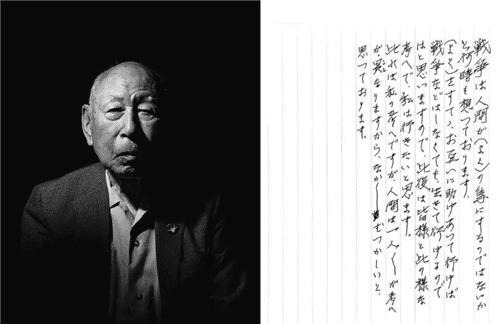 戦争は人間が(よく)の為にするのではないか
と何時も想っております。
(よく)をすてて、お互いに助けあって行けば
戦争などはしなくても、生きて行けるので
はと思いますので、此後は皆様と此の様な
考へで、私は行きたいと思ます。
此れは私の考へですが、人間は一人〱が考へ
が異なりますから、なか〱むつかしいと、
思っております。